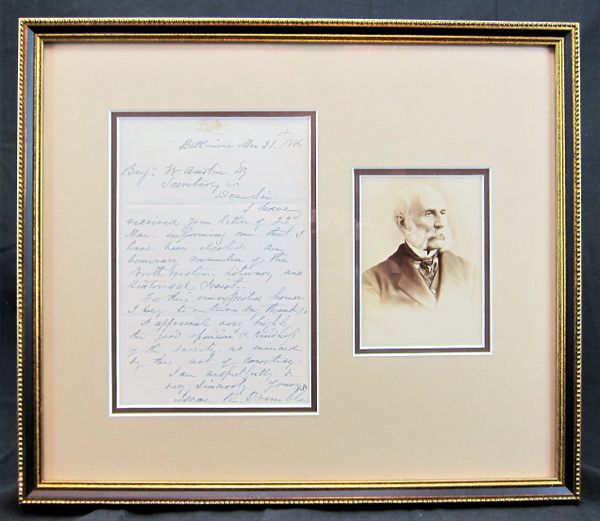 Baltimore Mar 31st 1886
Benj: W Austin Esq
Secretary
Dear Sir.
I have
received your letter of 22d
Mar. informing me that I
have been elected an
honorary member of the
North Western Literary and
Historical Society.
For this unexpected honor
I beg to return my thanks.
I appreciate very highly
the good opinion & kindness
of the Society as evinced
by this act of courtesy.
I am respectfully &
very sincerely Yours
Isaac R. Trimble